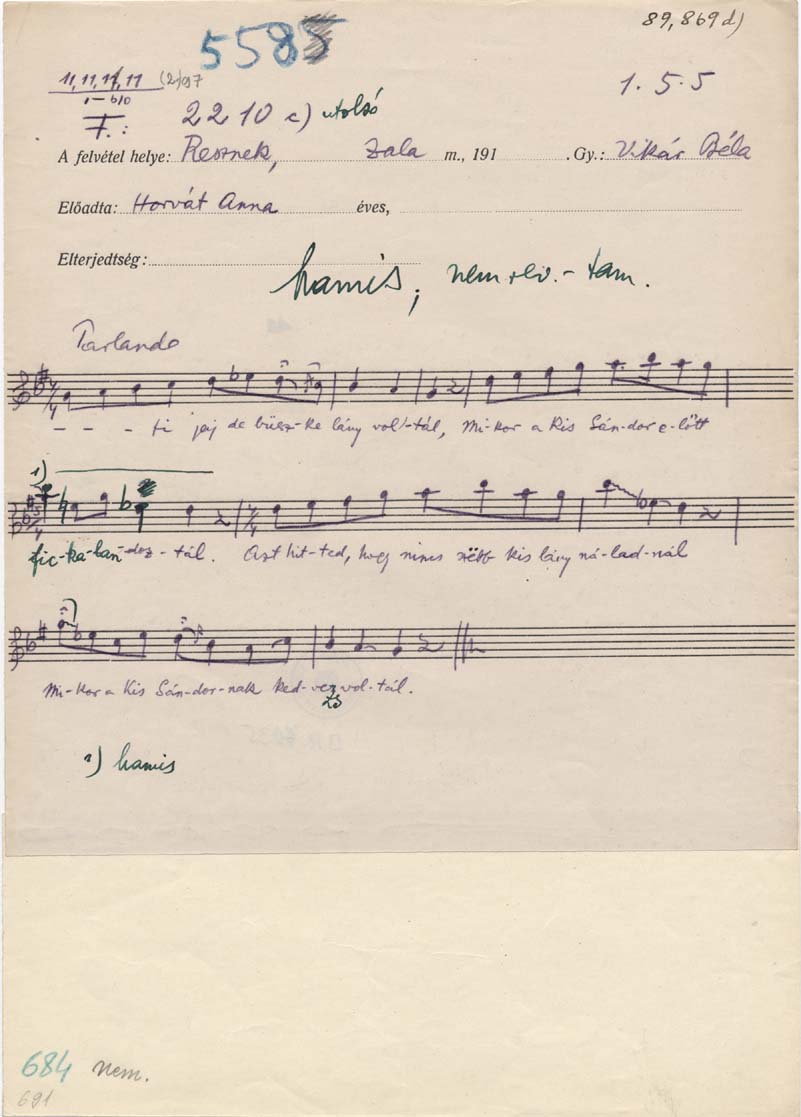 89,869 d)
5585
11, 11, 11, 11 (2)97
1–b10
1. 5. 5
F.: 2210 c) utolsó
A felvétel helye: Resznek, Zala m., 191 . Gy.: Vikár Béla
Előadta: Horvát Anna éves,
Elterjedtség:
hamis, nem rev. - tam.
Parlando
– – – fi jaj de büsz-ke lány vol-tál, Mi-kor a Kis Sán-dor e-lőtt
1)
fic-ka-lan-doz-tál. Azt hit-ted, hogy nincs szëbb kis lány ná-lad-nál
Mi-kor a Kis Sán-dor-nak ked-vez vol-tál.
zs
1) hamis
684 nem.
691